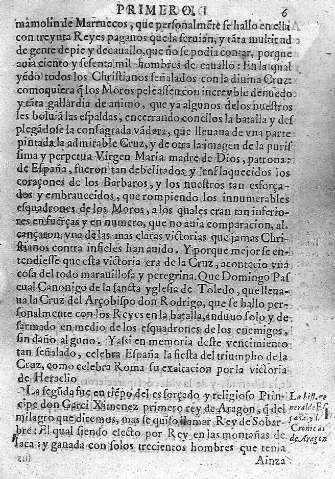 PRIMERO. 6
mamolin de Marruecos, que personalmẽte se hallo en ella
con treynta Reyes paganos que la seruian, y tãta multitud
de gente de pie y de cauallo, que no se podia contar, porque
auia ciento y sesenta mil hombres de cauallo: En la qual
yẽdo todos los Christianos señalados con la diuina Cruz:
comoquiera q̃ los Moros peleassen con increyble denuedo
y tãta gallardia de animo, que ya algunos de los nuestros
les boluiã las espaldas, encerrando concilios la batalla y des
plegãdose la consagrada vãdera, que lleuaua de vna parte
pintada la admirable Cruz, y de otra la imagen de la puris
sima y perpetua Virgen Maria madre de Dios, patrona
de España, fueron tan debelitados y enflaquecidos los
coraçones de los Barbaros, y los nuestros tan esforça-
dos y embrauecidos, que rompiendo los innumerables
esquadrones de los Moros, a los quales eran tan inferio-
res en fuerças y en numero, que no auia comparacion, al-
cançaron vna de las mas claras victorias que jamas Chri-
stianos contra infieles han auido. Y porque mejor se en-
tendiesse que esta victoria era de la Cruz, acontecio vna
cosa del todo marauillosa y peregrina. Que Domingo Pas
cual Canonigo de la sancta yglesia de Toledo, que lleua-
ua la Cruz del Arçobispo don Rodrigo, que se hallo per-
sonalmente con los Reyes en la batalla, anduuo solo y de-
sarmado en medio de los esquadrones de los enemigos,
sin daño alguno. Y assi en memoria deste vencimiento
tan señalado, celebra España la fiesta del triumpho de la
Cruz, como celebra Roma su exaltacion por la victoria
de Heraclio
La segũda fue en tiẽpo del esforçado y religioso Prin-
cipe don Garci Ximenez primero rey de Aragon, q̃ del
milagro que diremos, mas se quiso llamar Rey de Sobar-
bre: El qual siendo electo por Rey en las montañas de
Iaca: y ganando con solos trecientos hombres que tenia
Ainza
La hist.
Cronicas
de Aragon